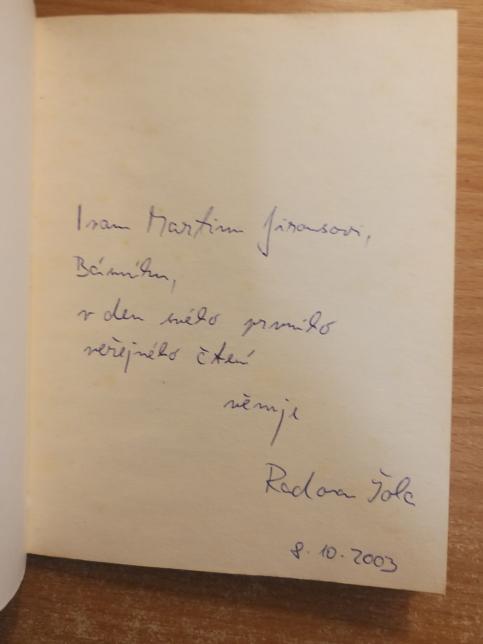 Ivanu Martinu Jirousovi,
Básníku,
v den svého prvního
veřejného čtení
věnuje
Radovan
8.10.2003